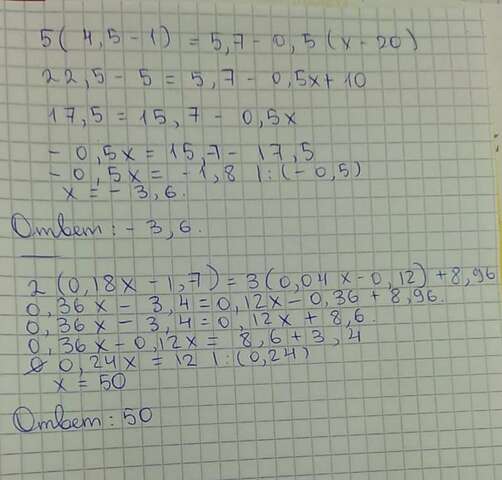 5(4,5-1) = 5,7 - 0,5(x-20)
22,5 - 5 = 5,7 - 0,5x + 10
17,5 = 15,7 - 0,5x
- 0,5x = 15,7 - 17,5
- 0,5x = -1,8 |:(-0,5)
x = -3,6.
Ответ: -3,6.
2(0,18x - 1,7) = 3(0,04x - 0,12) + 8,96
0,36x - 3,4 = 0,12x - 0,36 + 8,96.
0,36x - 3,4 = 0,12x + 8,6.
0,36x - 0,12x = 8,6 + 3,4
0,24x = 12 |:(0,24)
x = 50
Ответ: 50